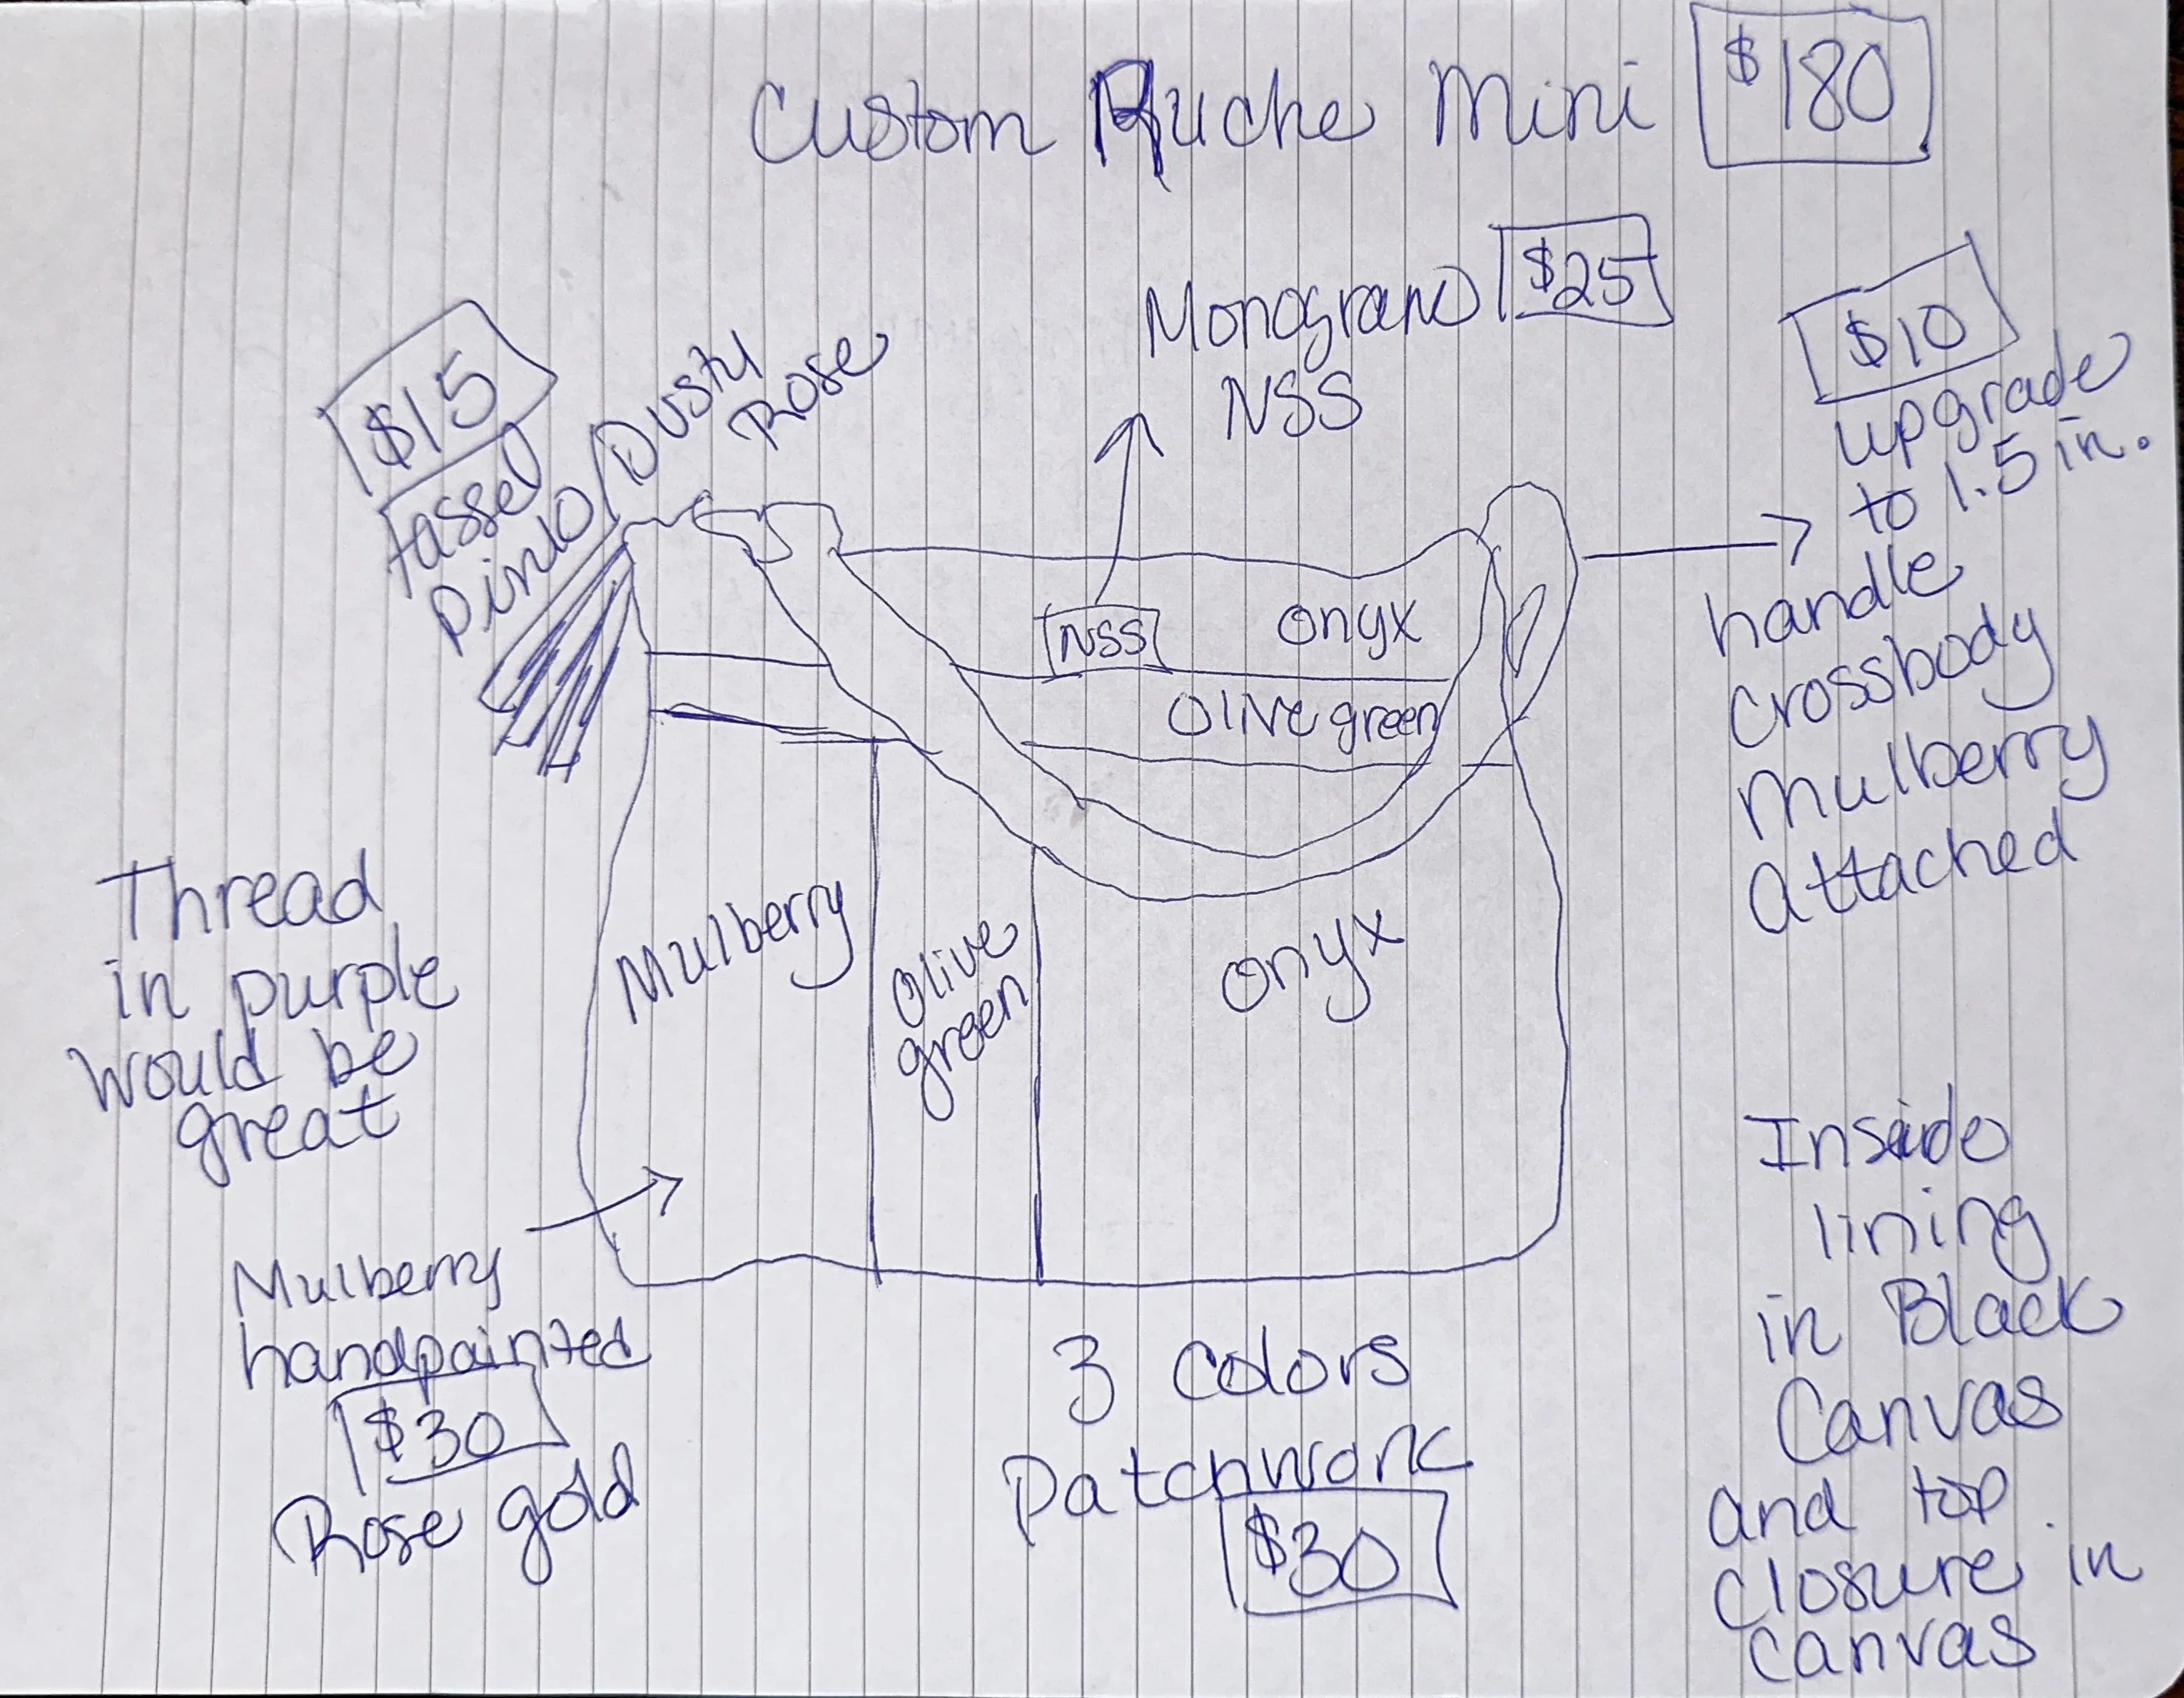 Custom Ruche Mini $180
Monogram $25
NSS
$15
tassel
Pink/Dusty
Rose
$10
upgrade
to 1.5 in.
handle
crossbody
Mulberry
Attached
NSS
onyx
Olive green
Mulberry
Olive
green
onyx
Thread
in purple
would be
great
Mulberry
handpainted
$30
Rose gold
3 colors
Patchwork
$30
Inside
lining
in Black
Canvas
and top
closure in
canvas